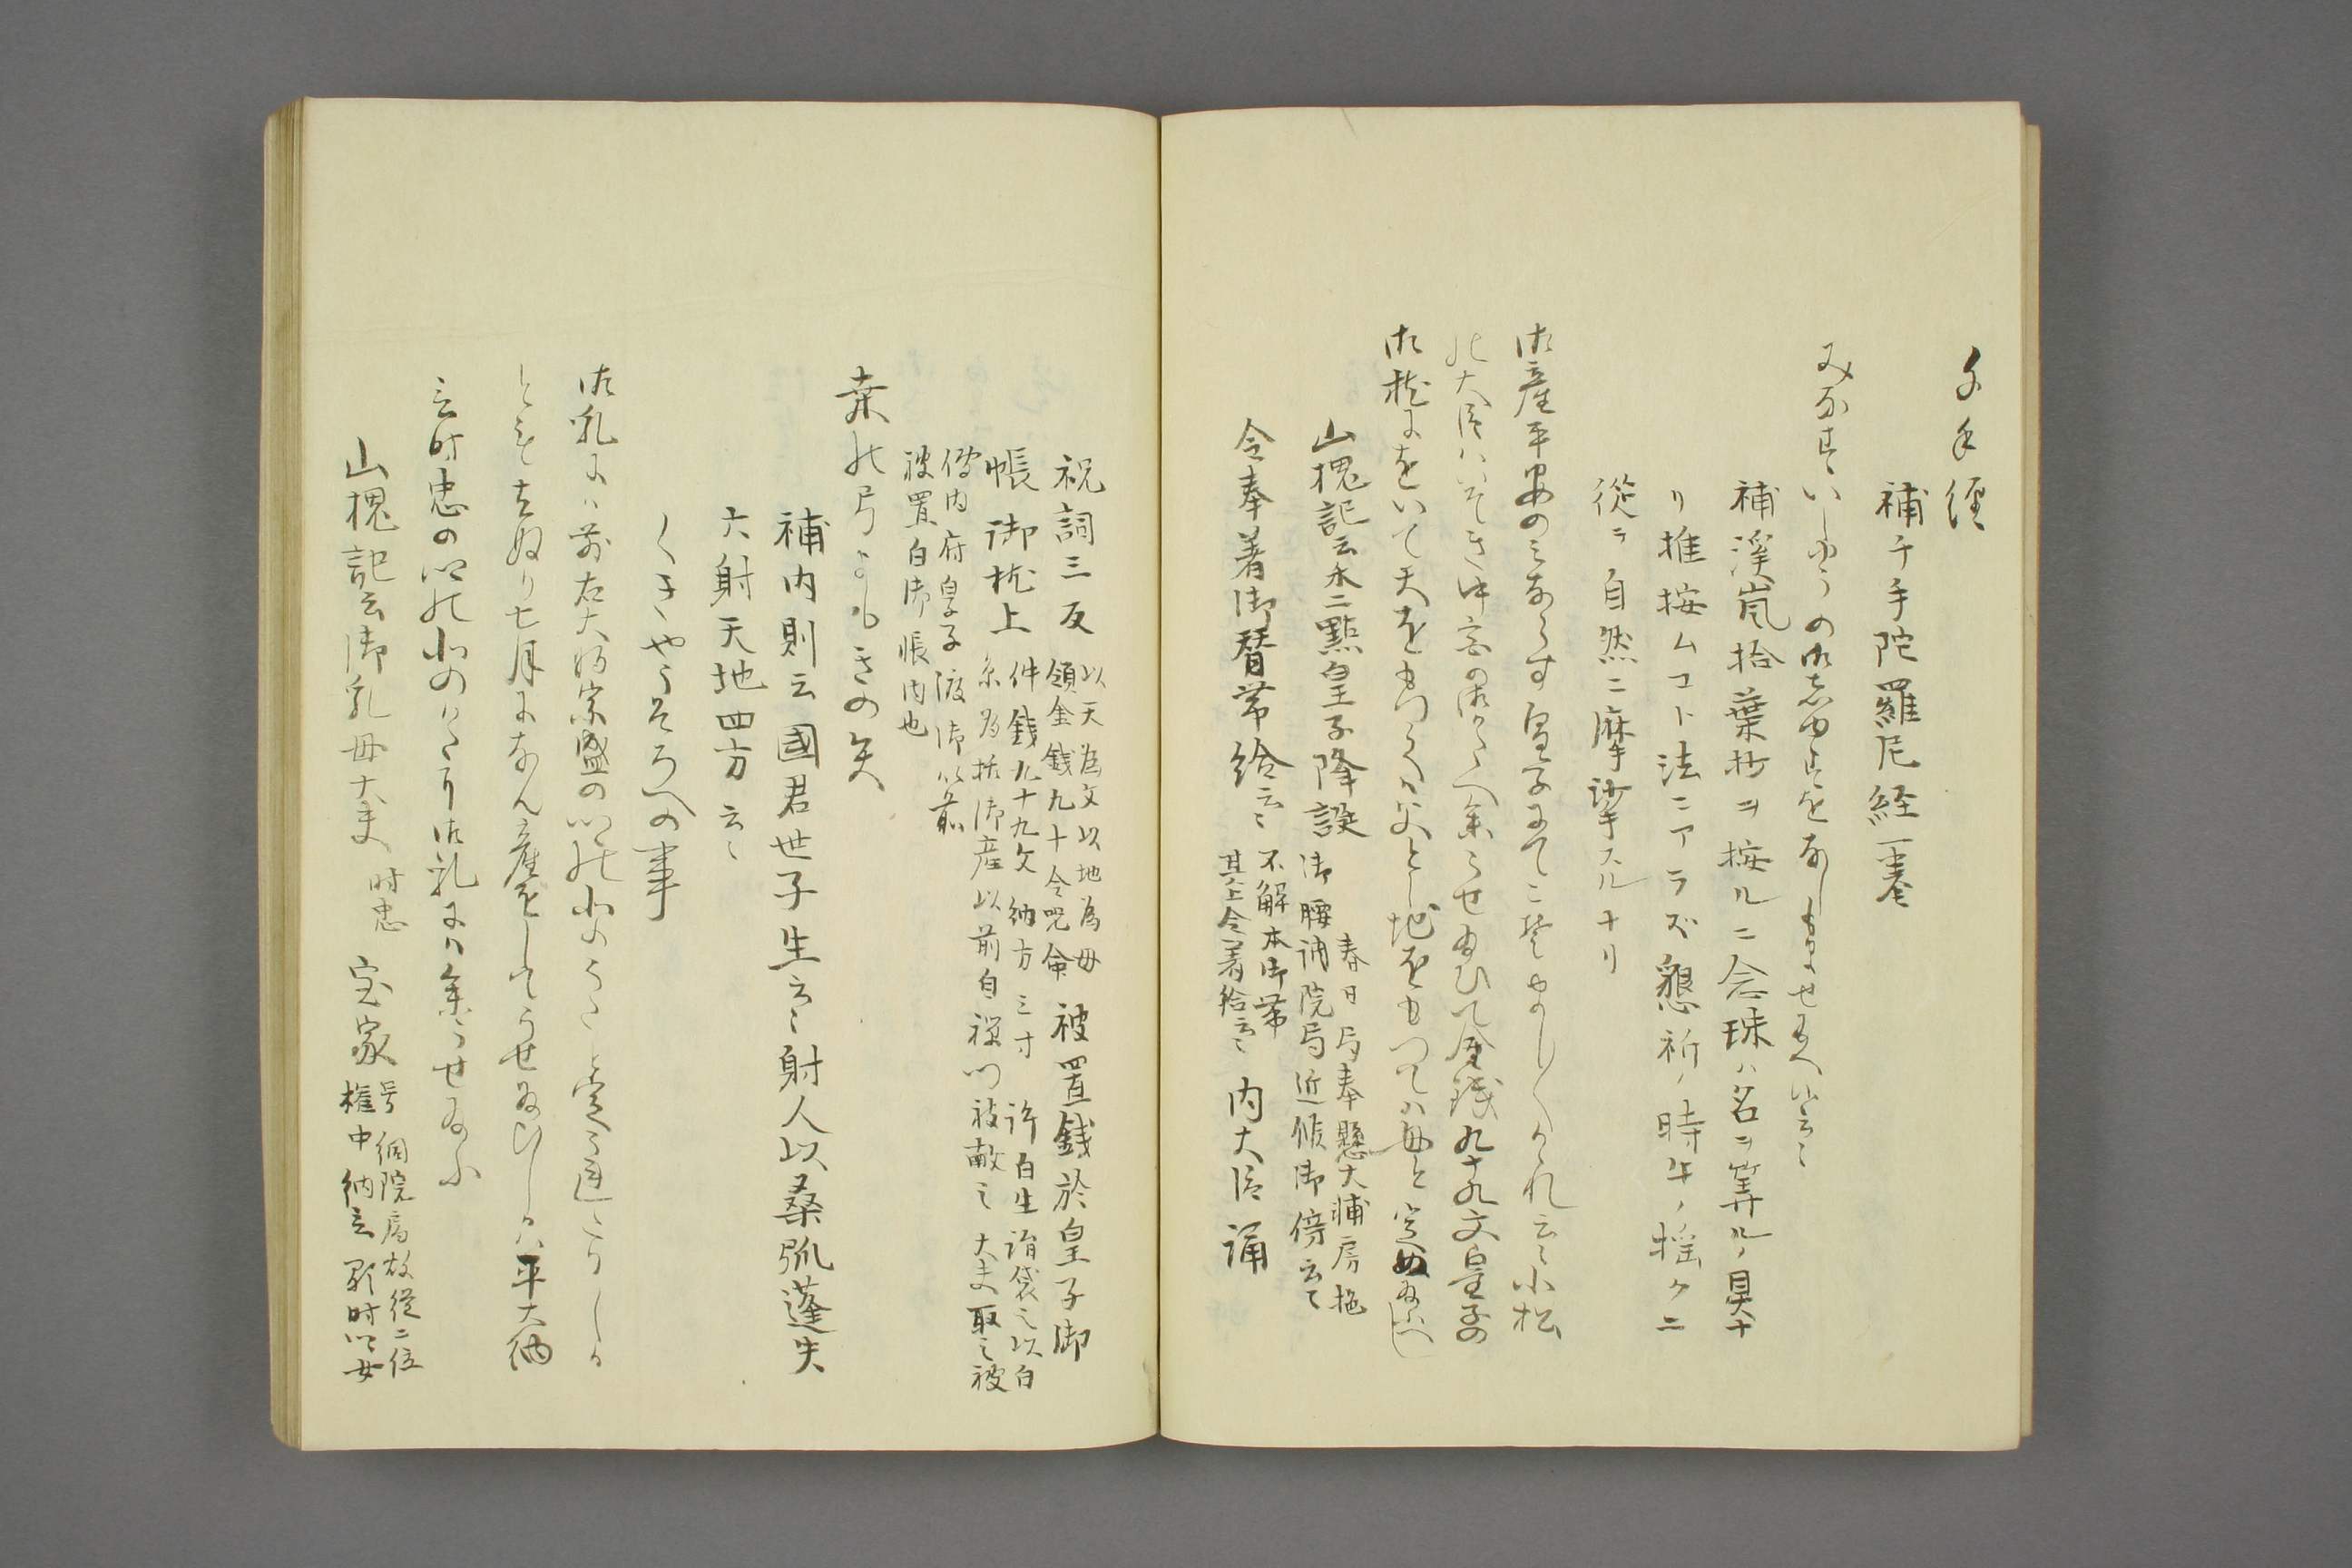 千手経
補千手陀羅尼経一巻
みな水いしゆうの御志ゆ春をおしもませ給へハ云々
補渓嵐拾葉抄ヲ按ルニ念珠ハ名ヲ算ルノ具ナ
リ推按ムコト法ニアラズ懇祈ノ時牛ノ揺クニ
従テ自然ニ摩挲スルナリ
御産平安のミあらす皇子にてこそましく／＼けれ云々小松
の大臣ハいそき中宮の御かたへ参らせ給ひて金銭九十九文皇子の
御枕にをいて天をもつてハ父とし地をもつてハ母と定め給へし
山槐記云未二點皇子降誕
春日局奉懸大輔房抱
御腰洞院局近候御傍云々
令奉着御替帯給云々
不解本御帯
其上令着給云々
内大臣誦
祝詞三反
以天為父以地為母
領金銭九十令呪命
被置銭於皇子御
帳御枕上
件銭九十九文納方三寸許白生絹袋之以白
糸為括御産以前自禄門被献之大夫取之被
傳内府皇子渡御以前
被置白御帳内也
桑の弓よもきの矢
補内則云國君世子生云々射人以桑弧蓬矢
六射天地四方云々
くきやうそろへの事
御乳にハ前右大将宗盛の卿の北のかたと定られたりしか
とも去ぬり七月になん産をしてうせ給ひしかハ平大納
言時忠の卿の北のかた御乳にハ参らせ給ふ
山槐記云御乳母大夫
時忠
室家
号洞院局故従二位
権中納言顕時卿女